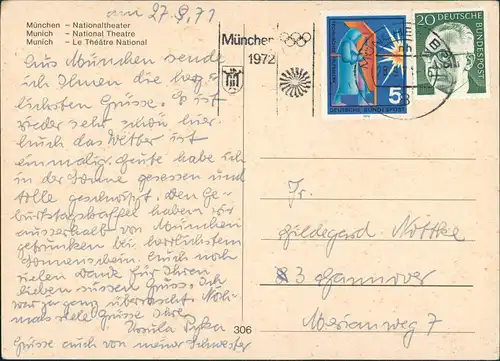 am 27.9.71
München – Nationaltheater
Munich – National Theatre
Munich – Le Théâtre National
München
1972
20
DEUTSCHE BUNDESPOST
5
DEUTSCHE BUNDESPOST
Aus München sende
ich Ihnen die herz-
lichsten Grüsse. Es ist
wieder sehr schön hier.
Auch das Wetter ist
einmalig. Heute habe ich
in der Sonne gesessen und
tolle geschwitzt. Den Ge-
burtstagskaffee haben wir
ausserhalb von München
getrunken bei herrlichstem
Sonnenschein. Auch noch
vielen Dank für Ihren
lieben süssen Gruss. Ich
war ja ganz überrascht. Noch-
mals viele Grüsse Ihre
Ursula
Grüsse auch von meiner Schwester
306
Fr.
Hildegard Nottke
3 Hannover
Meranweg 7